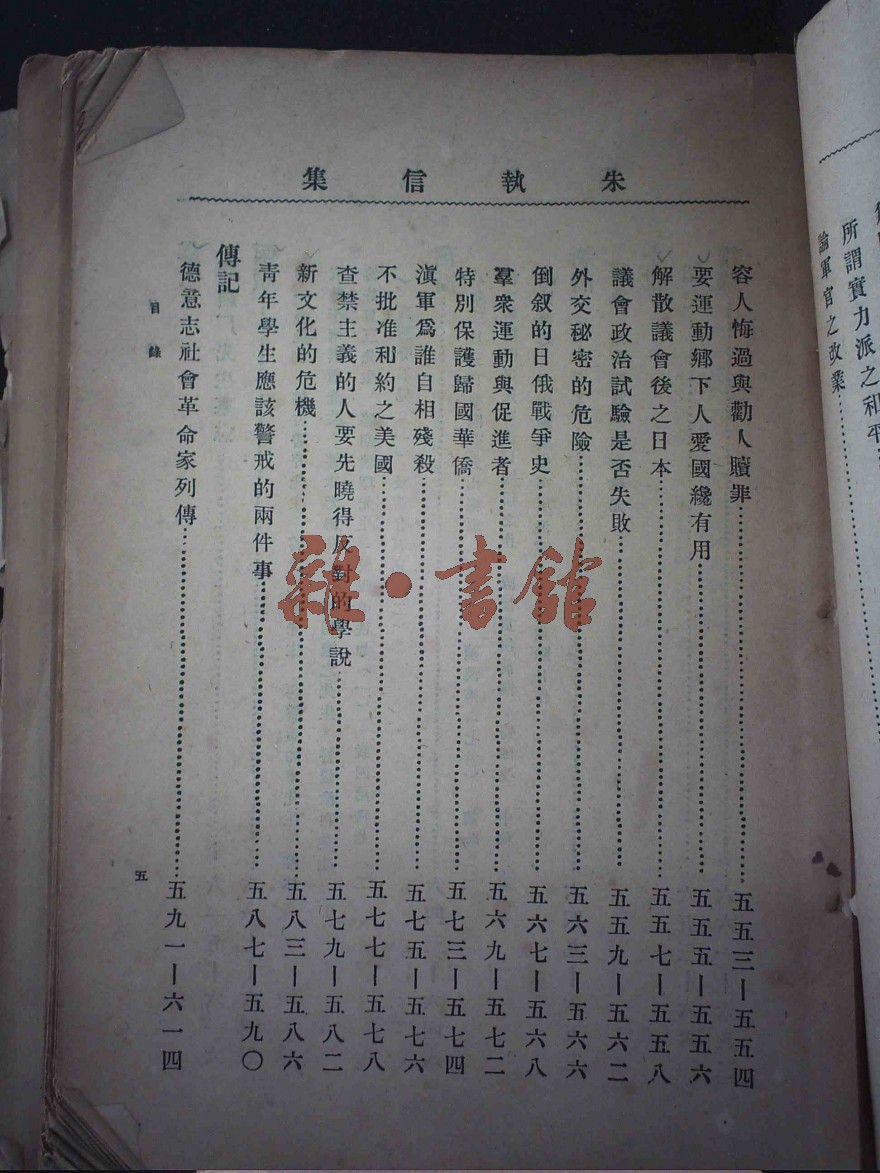 朱執信集
容人悔過與勸人贖罪……五五三—五五四
要運動鄉下人愛國纔有用……五五五—五五六
解散議會後之日本……五五七—五五八
議會政治試驗是否失敗……五五九—五六二
外交秘密的危險……五六三—五六六
倒叙的日俄戰爭史……五六七—五六八
羣衆運動與促進者……五六九—五七二
特別保護歸國華僑……五七三—五七四
滇軍爲誰自相殘殺……五七五—五七六
不批准和約之美國……五七七—五七八
查禁主義的人要先曉得反對的學說……五七九—五八二
新文化的危機……五八三—五八六
青年學生應該警戒的兩件事……五八七—五九〇
傳記
德意志社會革命家列傳……五九一—六一四
目錄
五
所謂實力派之和平
論軍官之改業……
雜·書館